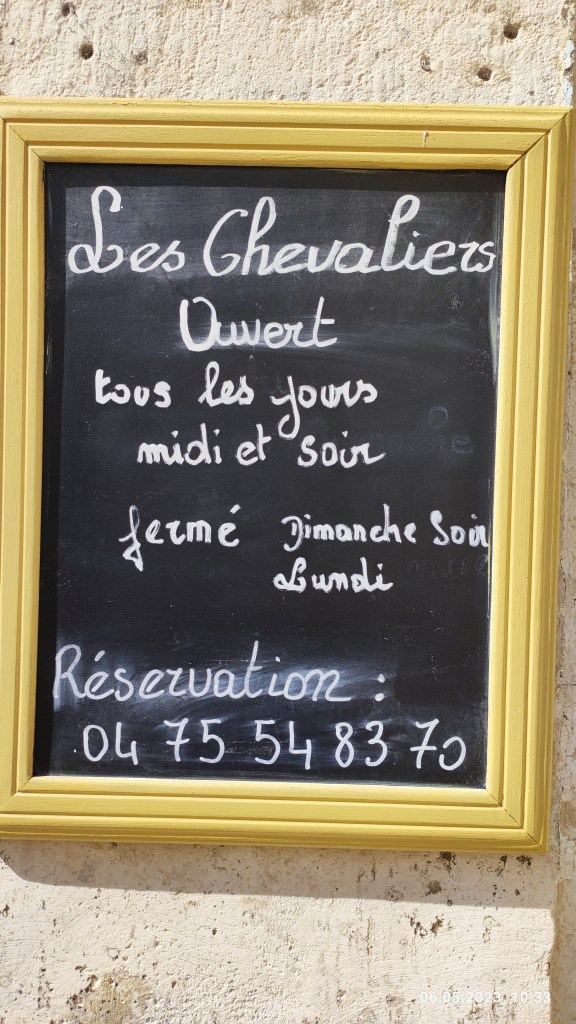 Les Chevaliers
Ouvert
tous les jours
midi et soir
fermé Dimanche Soir
Lundi
Réservation :
04 75 54 83 70
06.05.2023 10:33